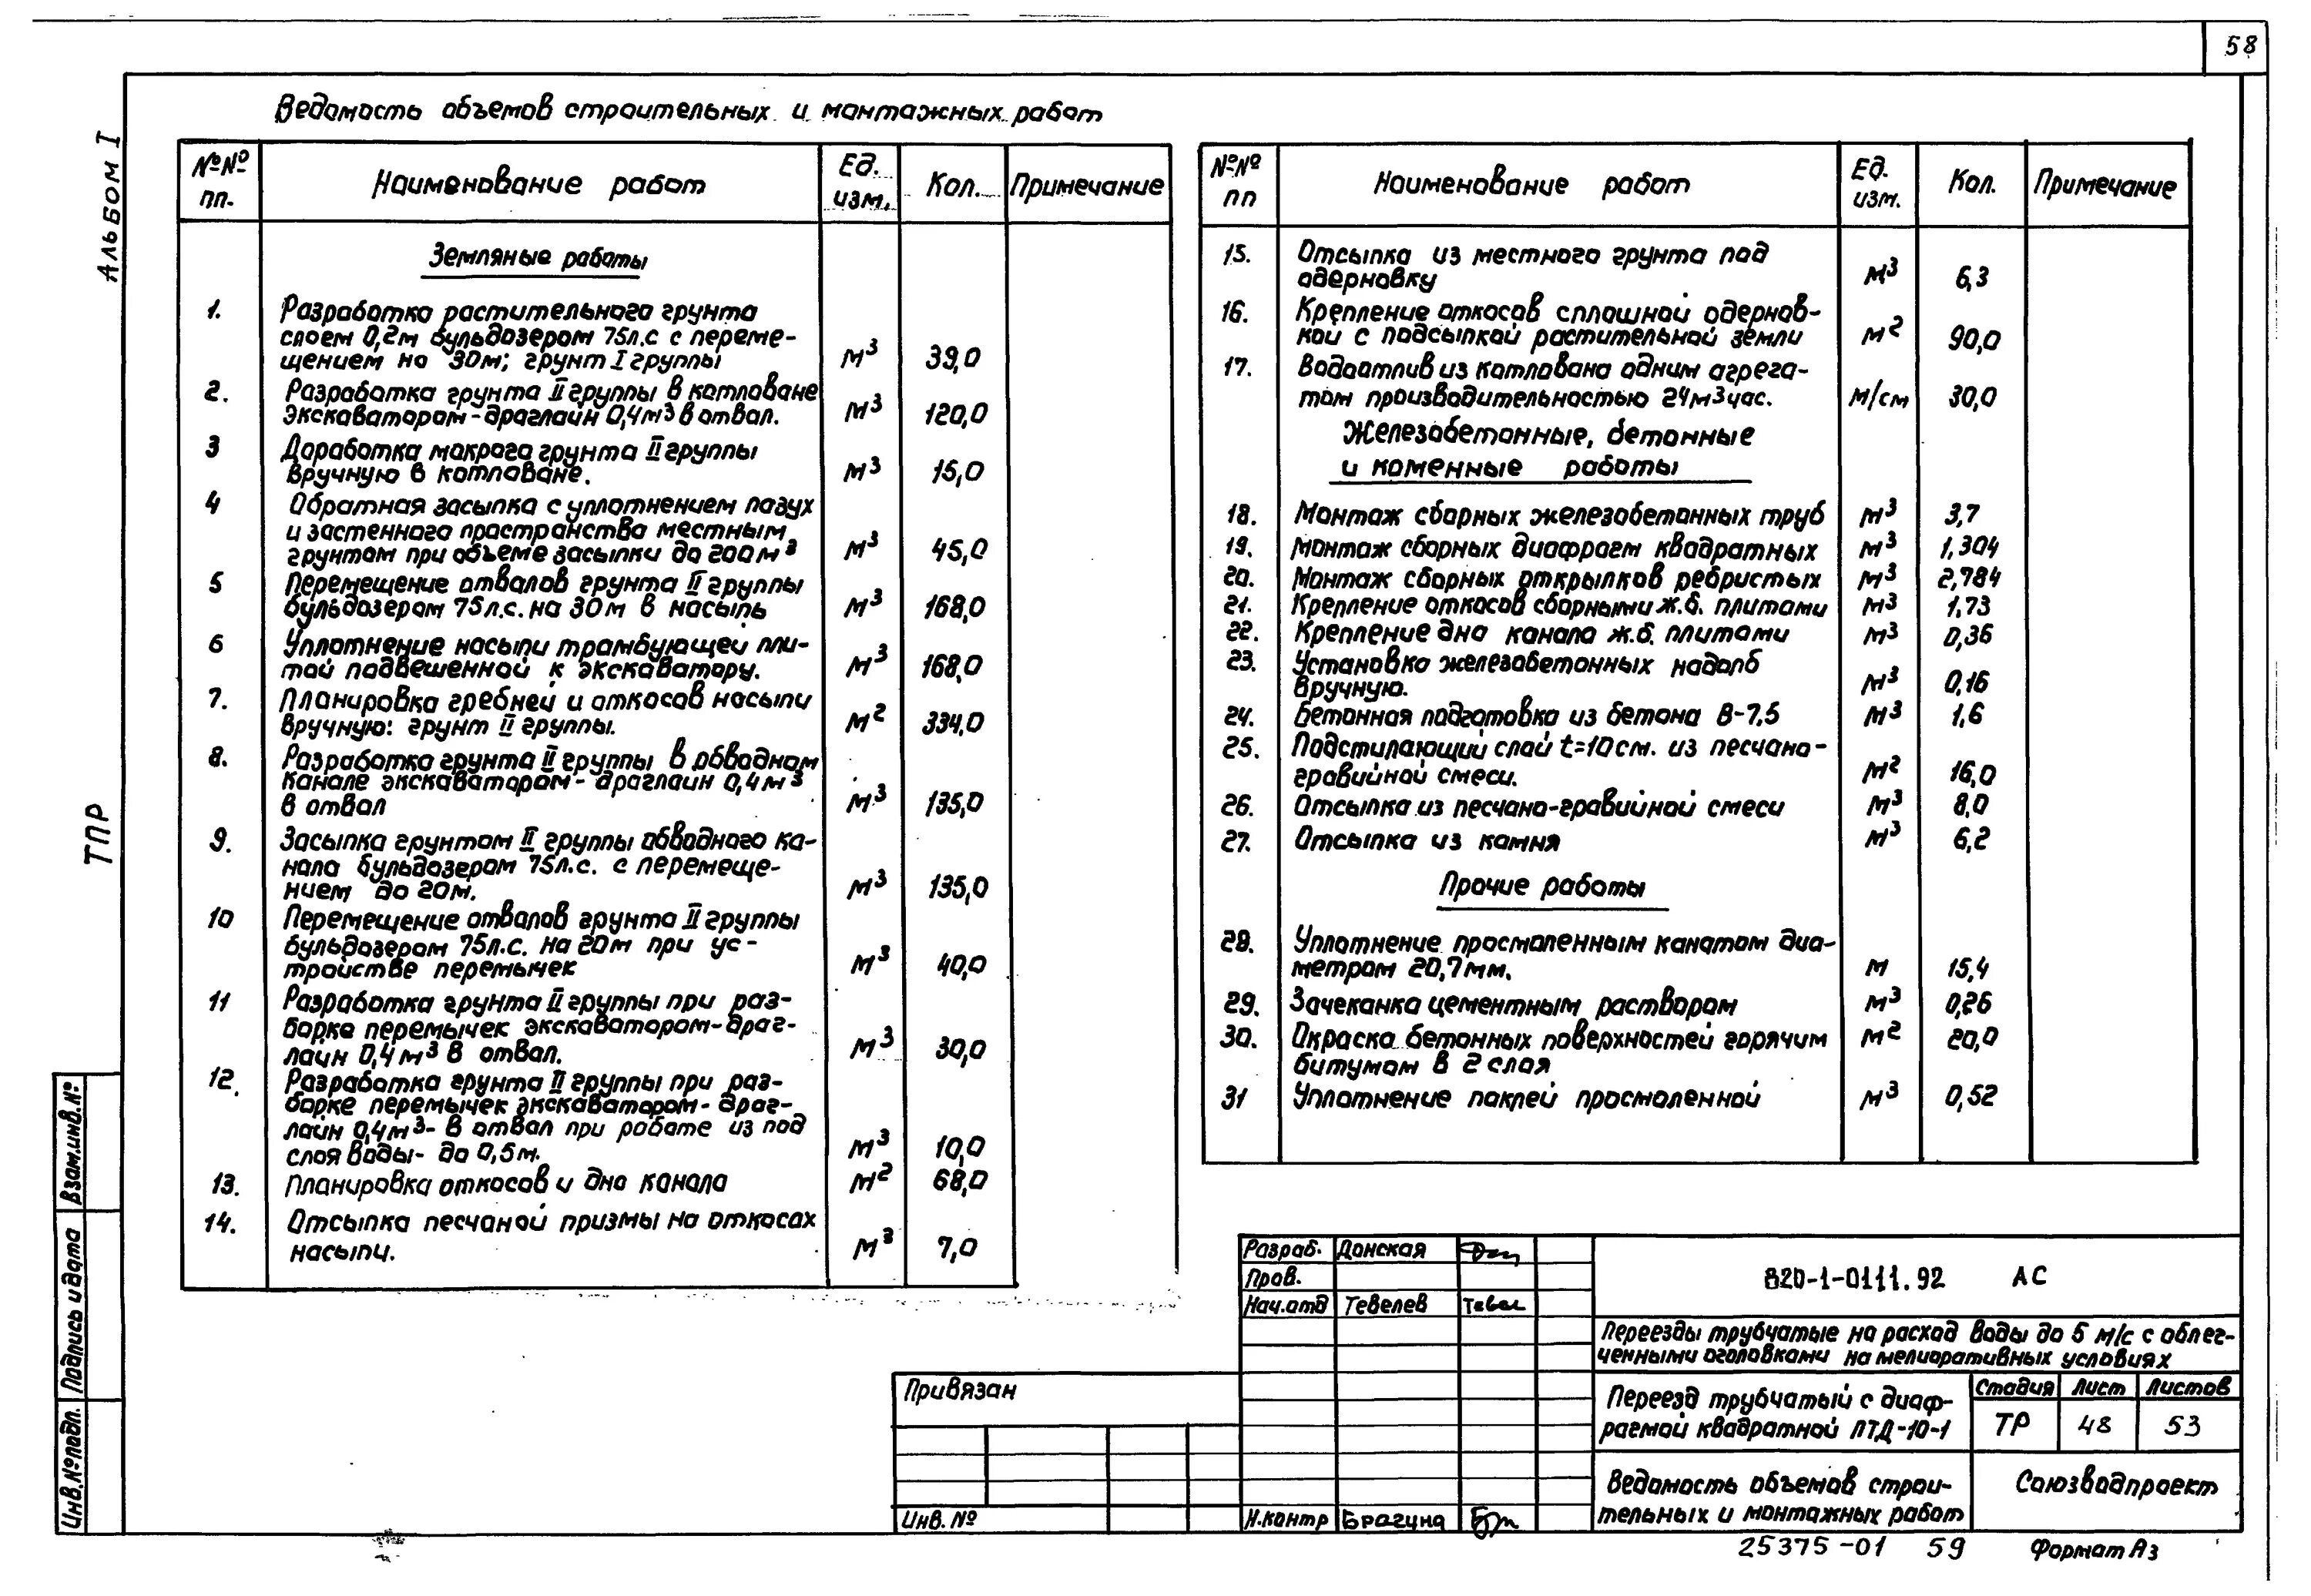 58
Ведомость объемов строительных и монтажных работ
Альбом I
ТПР
№№ пп. Наименование работ Ед. изм. Кол. Примечание
Земляные работы
1. Разработка растительного грунта
слоем 0,2м бульдозером 75л.с с переме-
щением на 30м; грунт I группы м3 39,0
2. Разработка грунта II группы в котловане
экскаватором-драглайн 0,4м3 в отвал. м3 120,0
3 Доработка мокрого грунта II группы
вручную в котловане. м3 15,0
4 Обратная засыпка с уплотнением пазух
и застенного пространства местным
грунтом при объеме засыпки до 200м3 м3 45,0
5 Перемещение отвалов грунта II группы
бульдозером 75л.с. на 30м в насыпь м3 168,0
6 Уплотнение насыпи трамбующей пли-
той подвешенной к экскаватору. м3 168,0
7. Планировка гребней и откосов насыпи
вручную: грунт II группы. м2 334,0
8. Разработка грунта II группы в обводном
канале экскаватором-драглайн 0,4м3
в отвал м3 135,0
9. Засыпка грунтом II группы обводного ка-
нала бульдозером 75л.с. с перемеще-
нием до 20м. м3 135,0
10 Перемещение отвалов грунта II группы
бульдозером 75л.с. на 20м при ус-
тройстве перемычек м3 40,0
11 Разработка грунта II группы при раз-
борке перемычек экскаватором-драг-
лайн 0,4м3 в отвал. м3 30,0
12. Разработка грунта II группы при раз-
борке перемычек экскаватором-драг-
лайн 0,4м3- в отвал при работе из под
слоя воды- до 0,5м. м3 10,0
13. Планировка откосов и дна канала м2 68,0
14. Отсыпка песчаной призмы на откосах
насыпи. м3 7,0
№№ пп Наименование работ Ед. изм. Кол. Примечание
15. Отсыпка из местного грунта под
одерновку м3 6,3
16. Крепление откосов сплошной одернов-
кой с подсыпкой растительной земли м2 90,0
17. Водоотлив из котлована одним агрега-
том производительностью 24м3час. м/см 30,0
Железобетонные, бетонные
и каменные работы
18. Монтаж сборных железобетонных труб м3 3,7
19. Монтаж сборных диафрагм квадратных м3 1,304
20. Монтаж сборных открылков ребристых м3 2,784
21. Крепление откосов сборными ж.б. плитами м3 1,73
22. Крепление дна канала ж.б. плитами м3 0,36
23. Установка железобетонных надолб
вручную. м3 0,16
24. Бетонная подготовка из бетона В-7,5 м3 1,6
25. Подстилающий слой t=10см. из песчано-
гравийной смеси. м2 16,0
26. Отсыпка из песчано-гравийной смеси м3 8,0
27. Отсыпка из камня м3 6,2
Прочие работы
28. Уплотнение просмоленным канатом диа-
метром 20,7мм. м 15,4
29. Зачеканка цементным раствором м3 0,26
30. Окраска бетонных поверхностей горячим м2 20,0
битумом в 2 слоя
31 Уплотнение паклей просмоленной м3 0,52
Взам.инв.№
Подпись и дата
Инв.№подл.
Разраб. Донская
Пров.
Нач.отд Тевелев
Н.контр Брагина
820-1-0111.92 АС
Переезды трубчатые на расход воды до 5 м/с с облег-
ченными оголовками на мелиоративных условиях
Переезд трубчатый с диаф-
рагмой квадратной ПТД-10-1
Стадия Лист Листов
ТР 48 53
Ведомость объемов строи-
тельных и монтажных работ
Союзводпроект
Привязан
Инв. №
25375-01 59 Формат А3